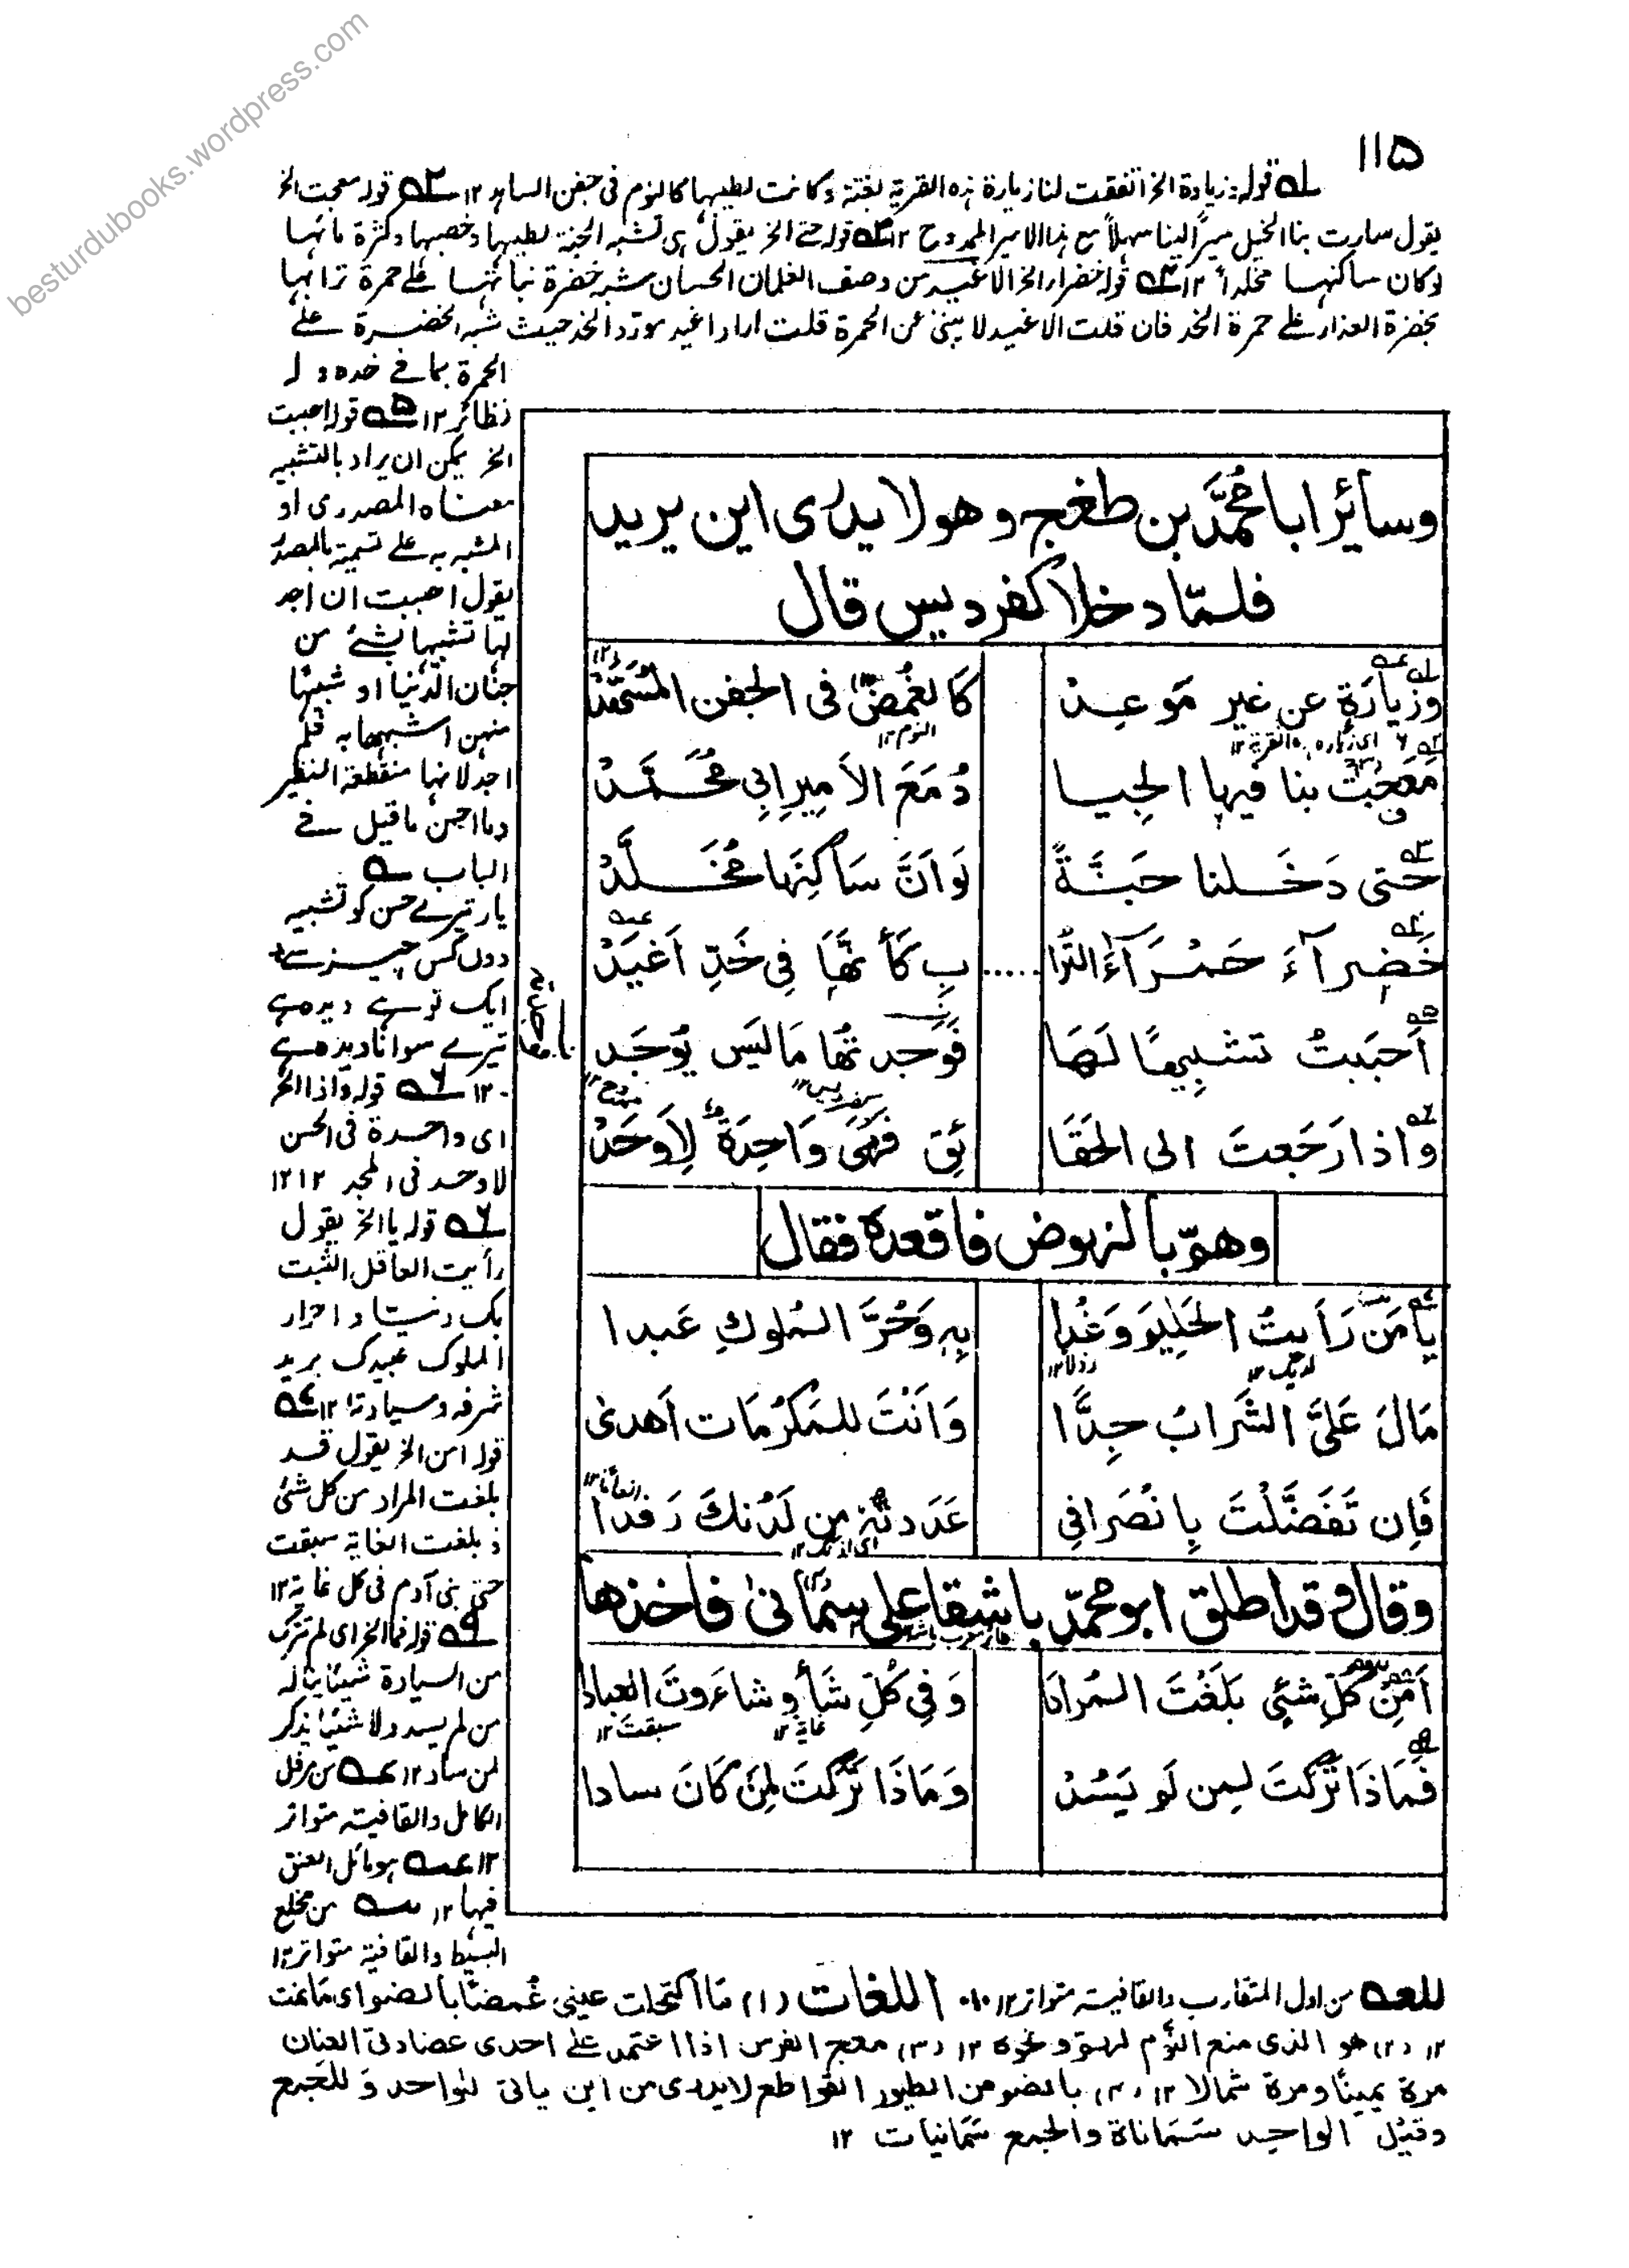 besturdubooks.wordpress.com
١١٥
له قوله زيادة الخ اتفقت لنا زيارة هذه القرية بغتة وكانت لطيبها كالنوم في جفن الساهد ١٢ قوله معجت الخ
يقول سارت بنا الخيل سيرًا لينا سهلاً مع هذا الامير الممدوح ١٢ قوله حتى الخ يقول هي تشبه الجنة لطيبها وخصبها وكثرة مائها
لو كان ساكنها مخلدا ١٢ قوله خضراء الخ الاغيد من وصف الغلمان الحسان شبه خضرة نباتها على حمرة ترابها
بخضرة العذار على حمرة الخد فان قلت الاغيد لا ينبئ عن الحمرة قلت اراد اغيد مورد الخد حيث شبه الخضرة على
الحمرة بما في خده وله
نظائر ١٢ قوله احببت
الخ يمكن ان يراد بالتشبيه
معناه المصدرى او
المشبه به على تسمية بالمصدر
يقول احببت ان اجد
لها تشبيها بشئ من
جنان الدنيا او شبهًا
منهن اشبهها به فلم
اجد لانها منقطعة النظير
وما احسن ما قيل في
الباب
يار تيرے حسن کو تشبیہ
دوں کس چیز سے
ایک تو ہے دیدہ ہے
تیرے سوا نادیدہ ہے
١٢ قوله واذا الخ
اى واحدة فى الحسن
لاوحد فى المجد ١٢ ١٢
قوله يا الخ يقول
رأيت العاقل الثبت
بك دنيئا واحرار
الملوك عبيدك يريد
شرفه وسيادته ١٢
قوله امن الخ يقول قد
بلغت المراد من كل شئ
وبلغت الغاية سبقت
حتى بنى آدم فى كل غاية ١٢
قوله فما الخ اى لم تترك
من السيادة شيئا يناله
من لم يسد ولا شيئا يذكر
لمن ساد ١٢ من مرفل
الكامل والقافية متواتر
١٢ هو مائل العنق
فيها ١٢ من مخلع
البسيط والقافية متواتر ١٢
وسائر ابا محمَّد بن طغج وهو لا يدرى اين يريد
فلمّا دخلا كفرديس قال
وَزِيَارَةٍ عن غير مَوعِدْ كَالغُمضِ فى الجفن المُسَهَّدْ
اى زيارة هذه القرية ١٢ النوم ١٢
مَعَجَتْ بنا فيها الجِيا دُ مَعَ الاَميرِ اَبِي مُحَمَّدْ
حَتى دَخَلنا جَنَّةً لَو اَنَّ سَاكِنَهَا مُخَلَّدْ
خَضِرآءَ حَمْرَآءَ التُّرا بِ كَأَنَّهَا فِي خَدِّ اَغيَدْ
اَحبَبتُ تشبِيهًا لَهَا فَوَجدتُهَا مَا لَيسَ يُوجَد
كفرديس ١٢ ممدوح ١٢
وَاذا رَجَعتَ الى الحَقَا ئِقِ فَهيَ وَاحِدَةٌ لِاَوحَدْ
وهمّ بالنهوض فاقعده فقال
يا مَن رَأَيتُ الحَلِيمَ وَغْدا بِهٖ وَحُرَّ المُلوكِ عَبدا
رذلا ١٢
مَالَ عَلَيَّ الشَرابُ جِدَّا وَاَنْتَ للمَكرُمَات اَهدىٰ
فَاِن تَفَضَّلْتَ بِانْصَرافِي عَدَدتُهٗ مِن لَدُنكَ رَفدا
وقال وقد اطلق ابو محمّد باشقا على سُمانىٰ فاخذها
اَمِنْ كلِّ شئٍي بَلَغْتَ المُرادَا وَفِي كُلِّ شَأوٍ شاءَوتَ العِبادا
غاية ١٢ سبقت ١٢
فَمَاذَا تَرَكتَ لِمن لَم يَسُدْ وَمَاذَا تَرَكتَ لِمَن كَانَ سادا
من اول المتقارب والقافية متواتر ١٢ اللغات (١) مَا اكتحلت عيني غُمضًا بالضم اى مَا نمت
١٢ (٢) هو الذى منع النوم لهم ونحوه ١٢ (٣) معج الفرس اذا اعتمد على احدى عضادتى العنان
مرة يمينًا ومرة شمالا ١٢ (٤) بالضم من الطيور القواطع لا يدرى من اين ياتى للواحد وَللجَمع
وقيل الواحد سُمَاناة والجمع سُمَانيات ١٢